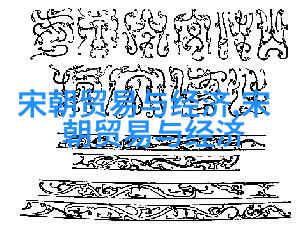 宋朝贸易与经济,宋
朝贸易与经济